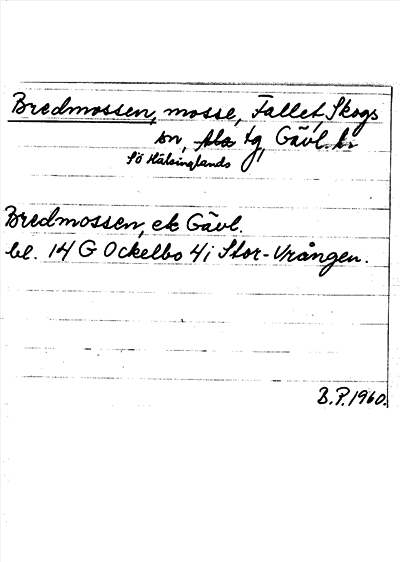 Bredmossen, mosse, Fallet, Skogs
sn, tg, Gävl. br
Sö Hälsinglands
Bredmossen, ek Gävl.
bl. 14 G Ockelbo 4i Stor-Vrången.
B.P. 1960.